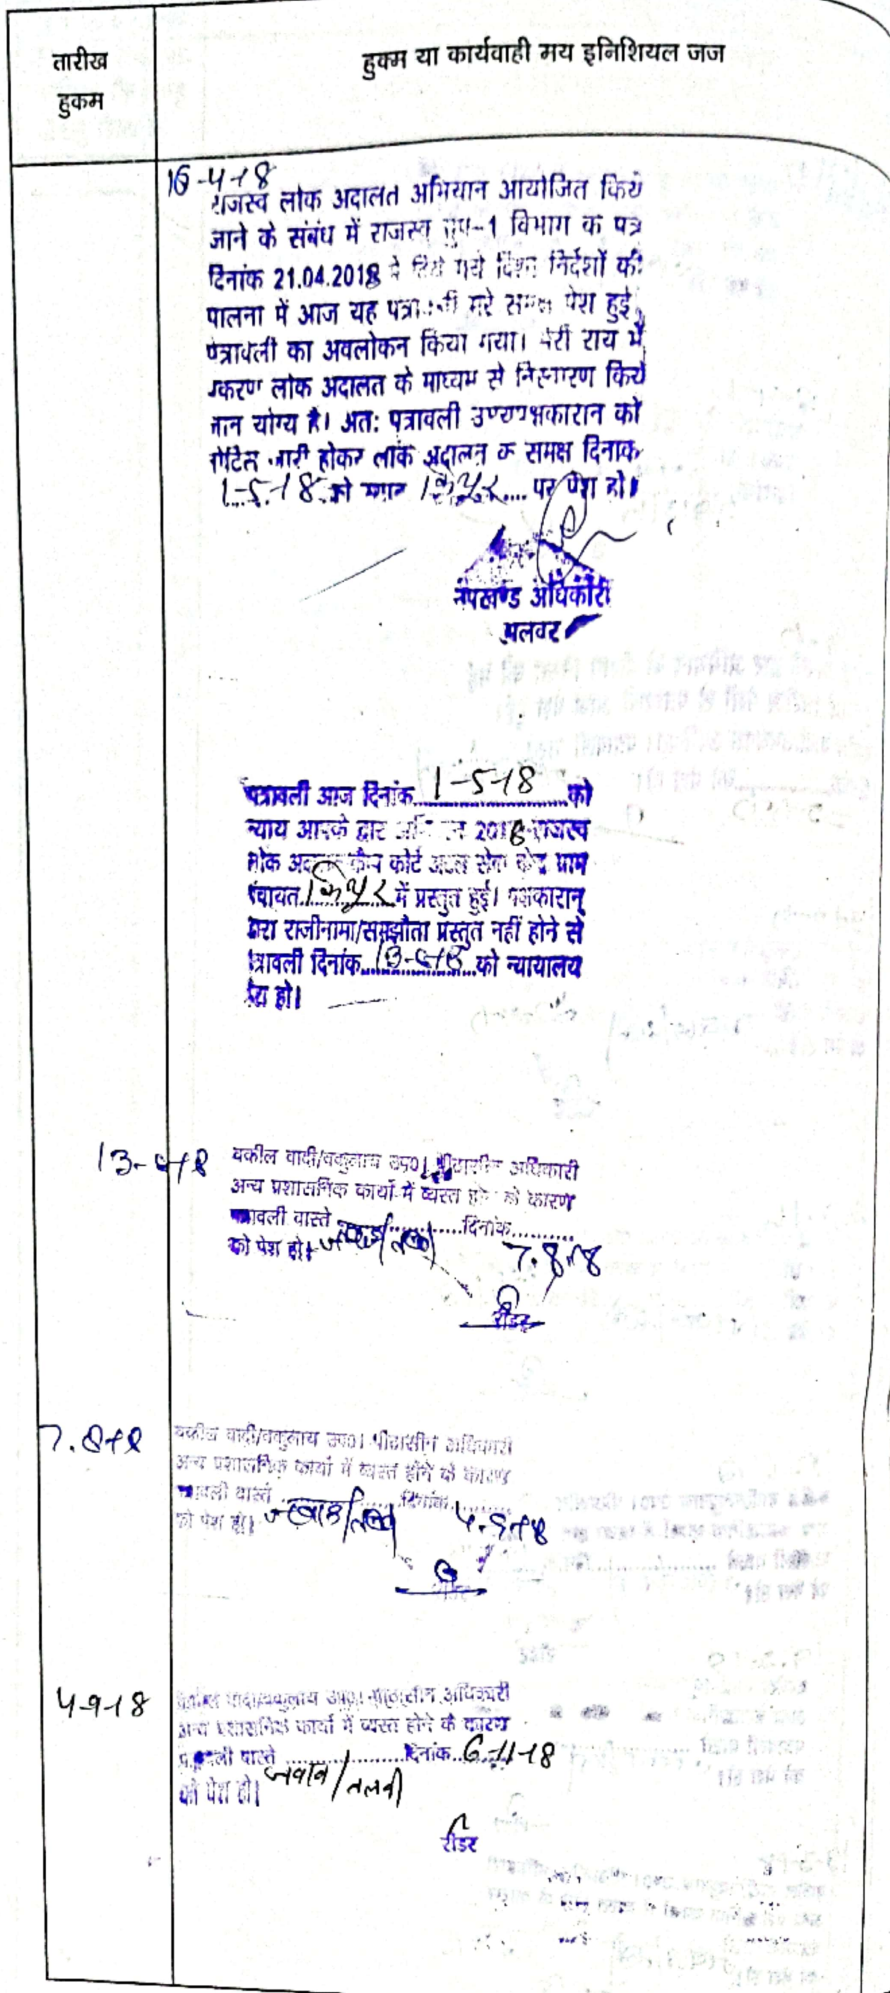 तारीख
हुकम
हुक्म या कार्यवाही मय इनिशियल जज
16-4-18
राजस्व लोक अदालत अभियान आयोजित किये
जाने के संबंध में राजस्व ग्रुप-1 विभाग के पत्र
दिनांक 21.04.2018 में दिये गये दिशा निर्देशों की
पालना में आज यह पत्रावली मेरे समक्ष पेश हुई,
पत्रावली का अवलोकन किया गया। मेरी राय में
प्रकरण लोक अदालत के माध्यम से निस्तारण किये
जाने योग्य है। अत: पत्रावली उभयपक्षकारान को
नोटिस जारी होकर लोक अदालत के समक्ष दिनांक
1-5-18 को .... पर पेश हो।
उपखण्ड अधिकारी
अलवर
पत्रावली आज दिनांक 1-5-18 को
न्याय आपके द्वार 2018 राजस्व
लोक कोर्ट अटल सेवा केन्द्र ग्राम
पंचायत में प्रस्तुत हुई। पक्षकारान्
द्वारा राजीनामा/समझौता प्रस्तुत नहीं होने से
पत्रावली दिनांक को न्यायालय
पेश हो।
वकील वादी/वकुलाय उप0। पीठासीन अधिकारी
अन्य प्रशासनिक कार्यो में व्यस्त होने के कारण
पत्रावली वास्ते ............दिनांक..........
को पेश हो। 7.8.18
रीडर
7.8.18
वकील वादी/वकुलाय उप0। पीठासीन अधिकारी
अन्य प्रशासनिक कार्यो में व्यस्त होने के कारण
पत्रावली वास्ते ............दिनांक..........
को पेश हो। जवाब/तलबी 4.9.18
4-9-18
वकील वादी/वकुलाय उप0। पीठासीन अधिकारी
अन्य प्रशासनिक कार्यो में व्यस्त होने के कारण
पत्रावली वास्ते ............दिनांक 6-11-18
को पेश हो। जवाब/तलबी
रीडर